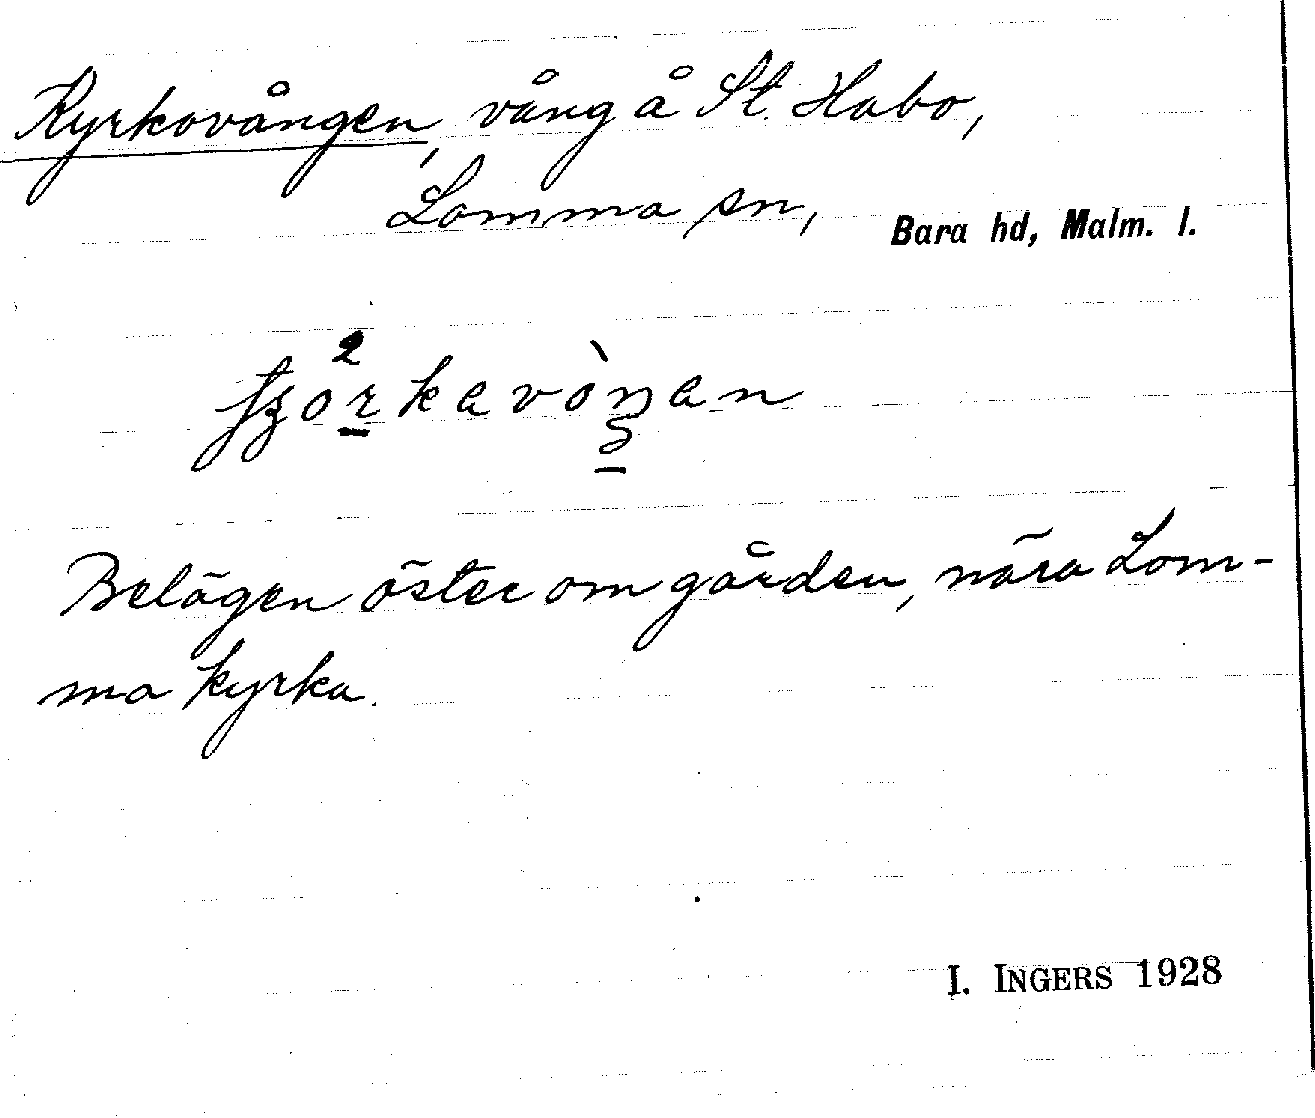 Kyrkovången, vång å St. Habo,
Lomma sn, Bara hd, Malm. l.
Belägen öster om gården, nära Lom-
ma kyrka.
I. INGERS 1928